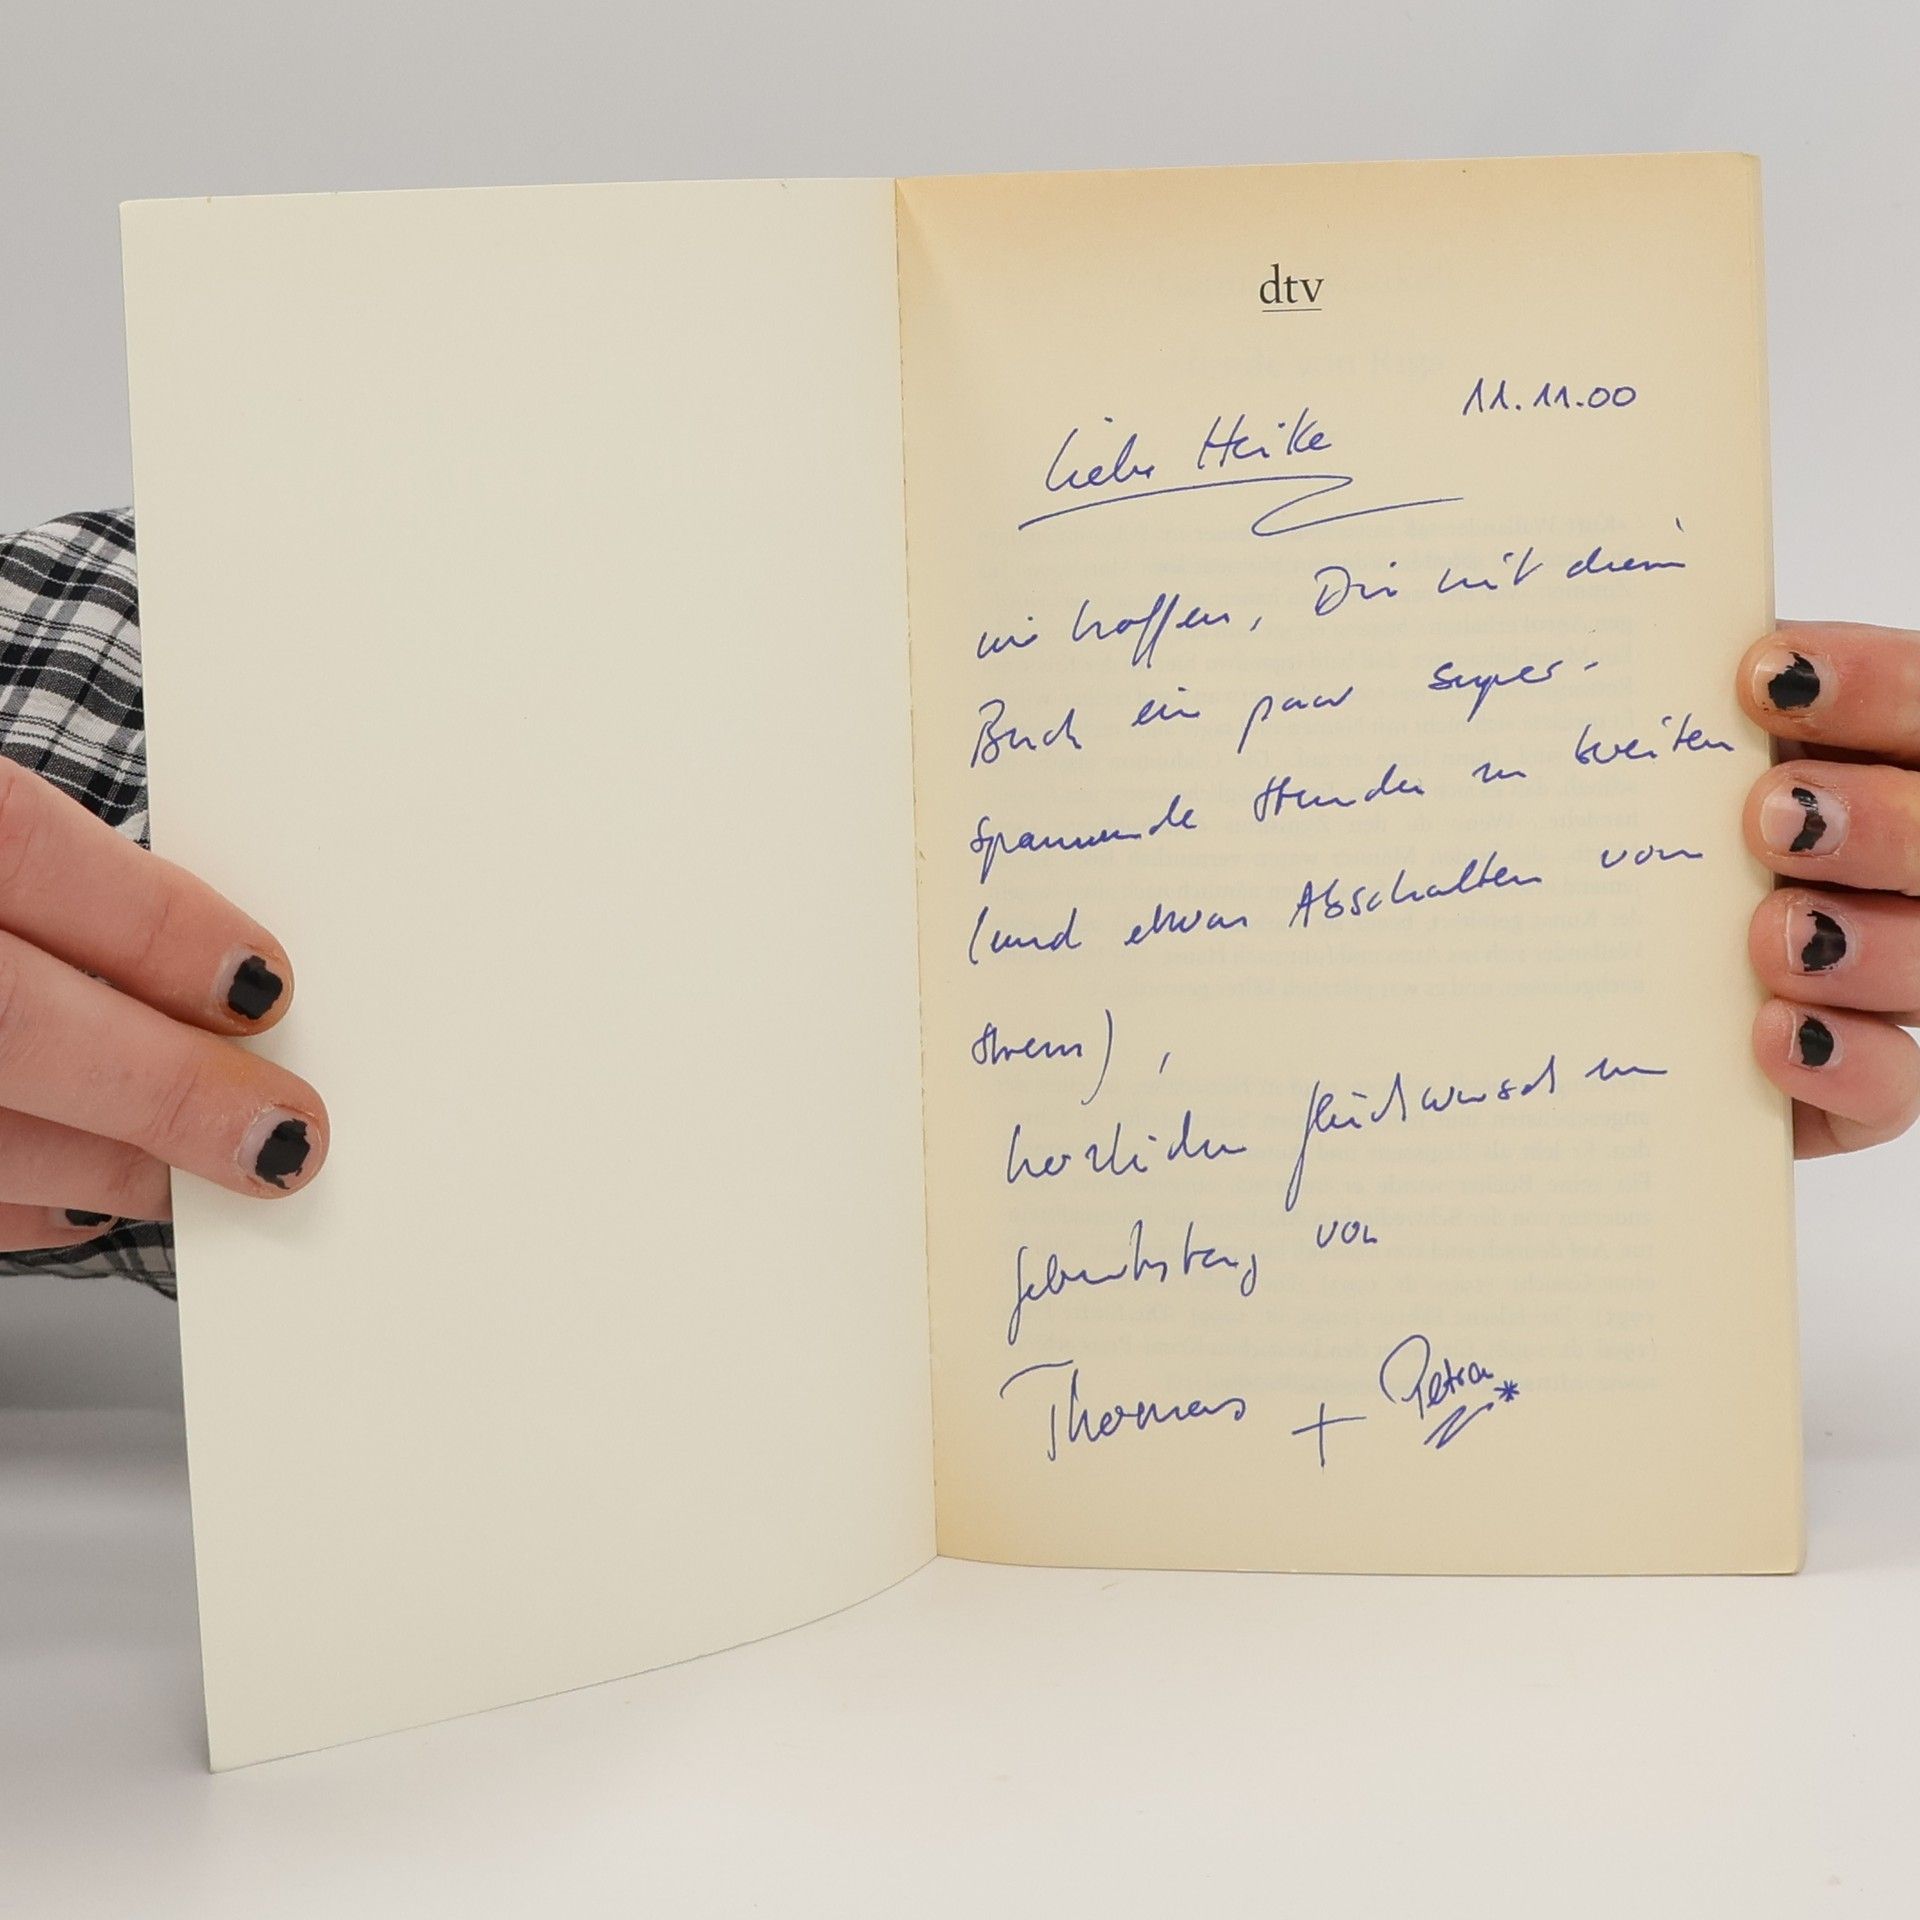 dtv
11.11.00
Liebe Heike
wir hoffen, Dir mit diesem
Buch ein paar super-
spannende Stunden zu bereiten
(und etwas Abschalten vom
Stress),
herzlichen Glückwunsch zum
Geburtstag von
Thomas + Petra